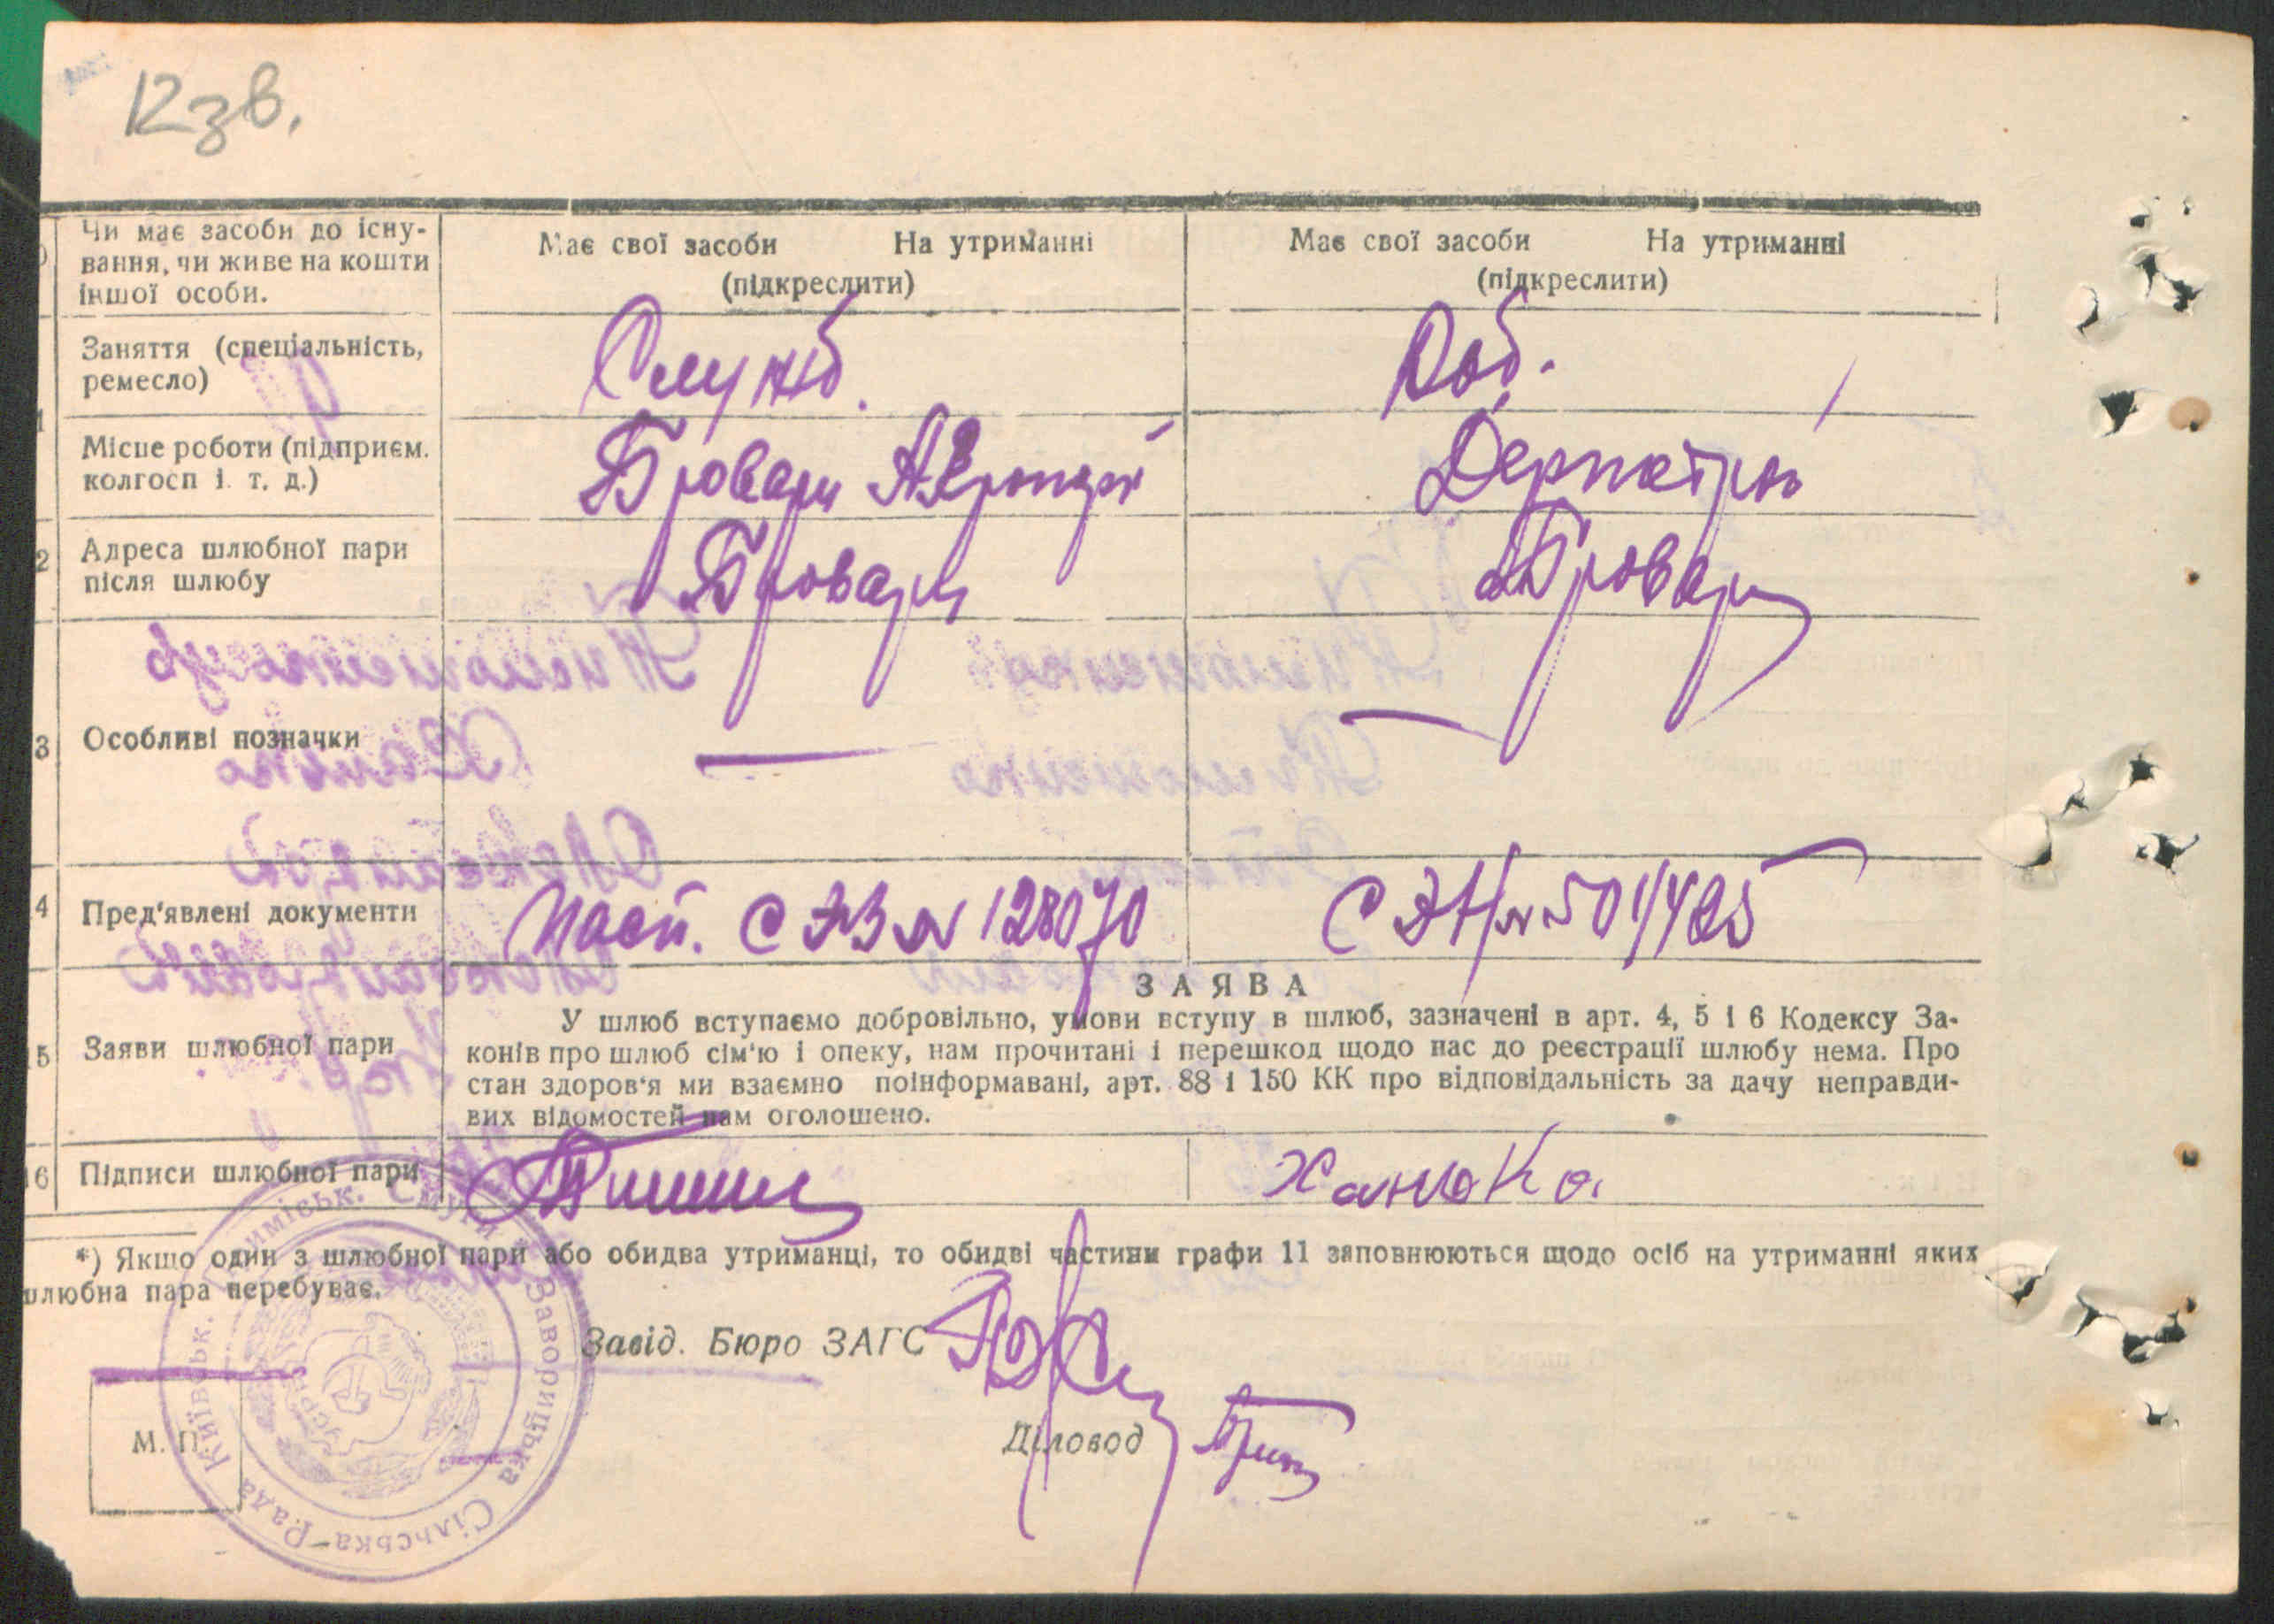 12зв.
Чи має засоби до існу-
вання, чи живе на кошти
іншої особи.
Має свої засоби На утриманні
(підкреслити)
Має свої засоби На утриманні
(підкреслити)
Заняття (спеціальність,
ремесло)
Служб.
Роб.
Місце роботи (підприєм.
колгосп і. т. д.)
Бровари
2 Адреса шлюбної пари
після шлюбу
Бровари
Бровари
3 Особливі позначки
— —
4 Пред'явлені документи
Пасп. С ЭЗ № 128070
501425
5 Заяви шлюбної пари
ЗАЯВА
У шлюб вступаємо добровільно, умови вступу в шлюб, зазначені в арт. 4, 5 і 6 Кодексу За-
конів про шлюб сім'ю і опеку, нам прочитані і перешкод щодо нас до реєстрації шлюбу нема. Про
стан здоров'я ми взаємно поінформавані, арт. 88 і 150 КК про відповідальність за дачу неправди-
вих відомостей нам оголошено.
6 Підписи шлюбної пари
Ханюка
*) Якщо один з шлюбної пари або обидва утриманці, то обидві частини графи 11 заповнюються щодо осіб на утриманні яких
шлюбна пара перебуває.
Завід. Бюро ЗАГС
Діловод
М. П.
Заворицька Сільська-Рада Київськ. Приміськ. Смуги *